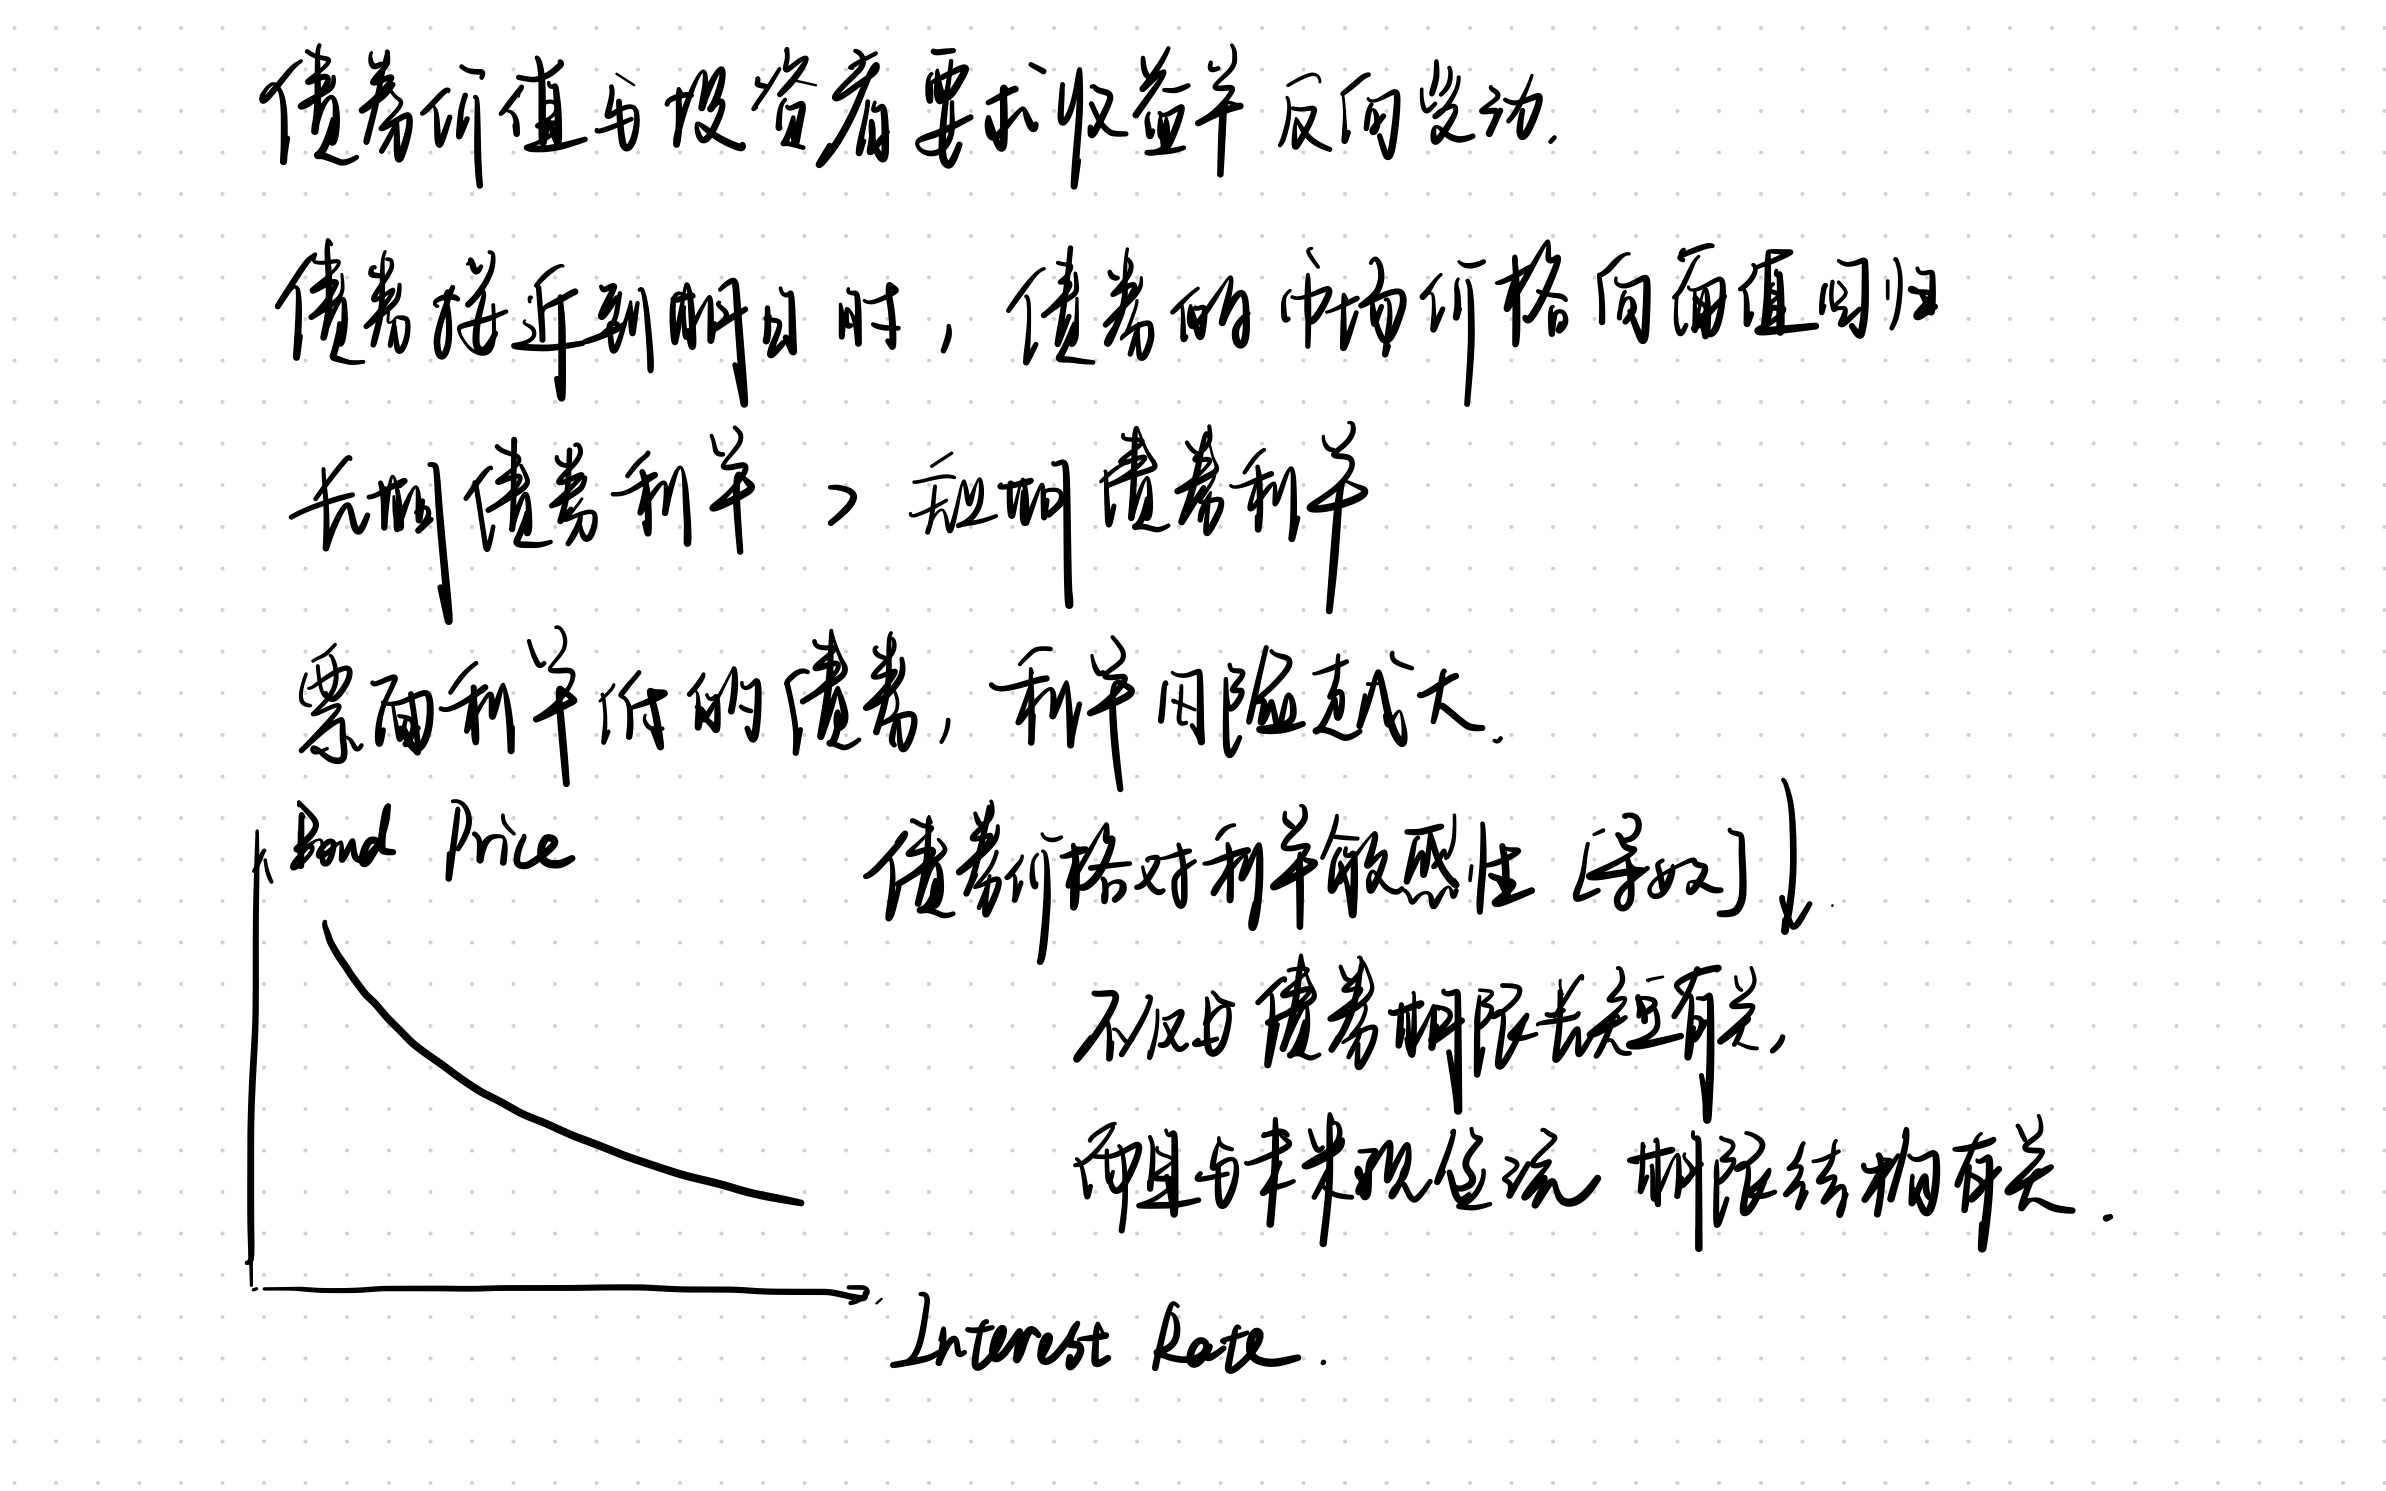 债券价值与投资者要求收益率反向变动.
债券接近到期日时，债券的市场价格向面值回归
长期债券利率 > 短期债券利率
票面利率低的债券，利率风险越大.
Bond Price
债券价格对利率敏感性 [导数] ↓.
不仅与债券期限长短有关，
而且与未来现金流期限结构有关.
Interest Rate.